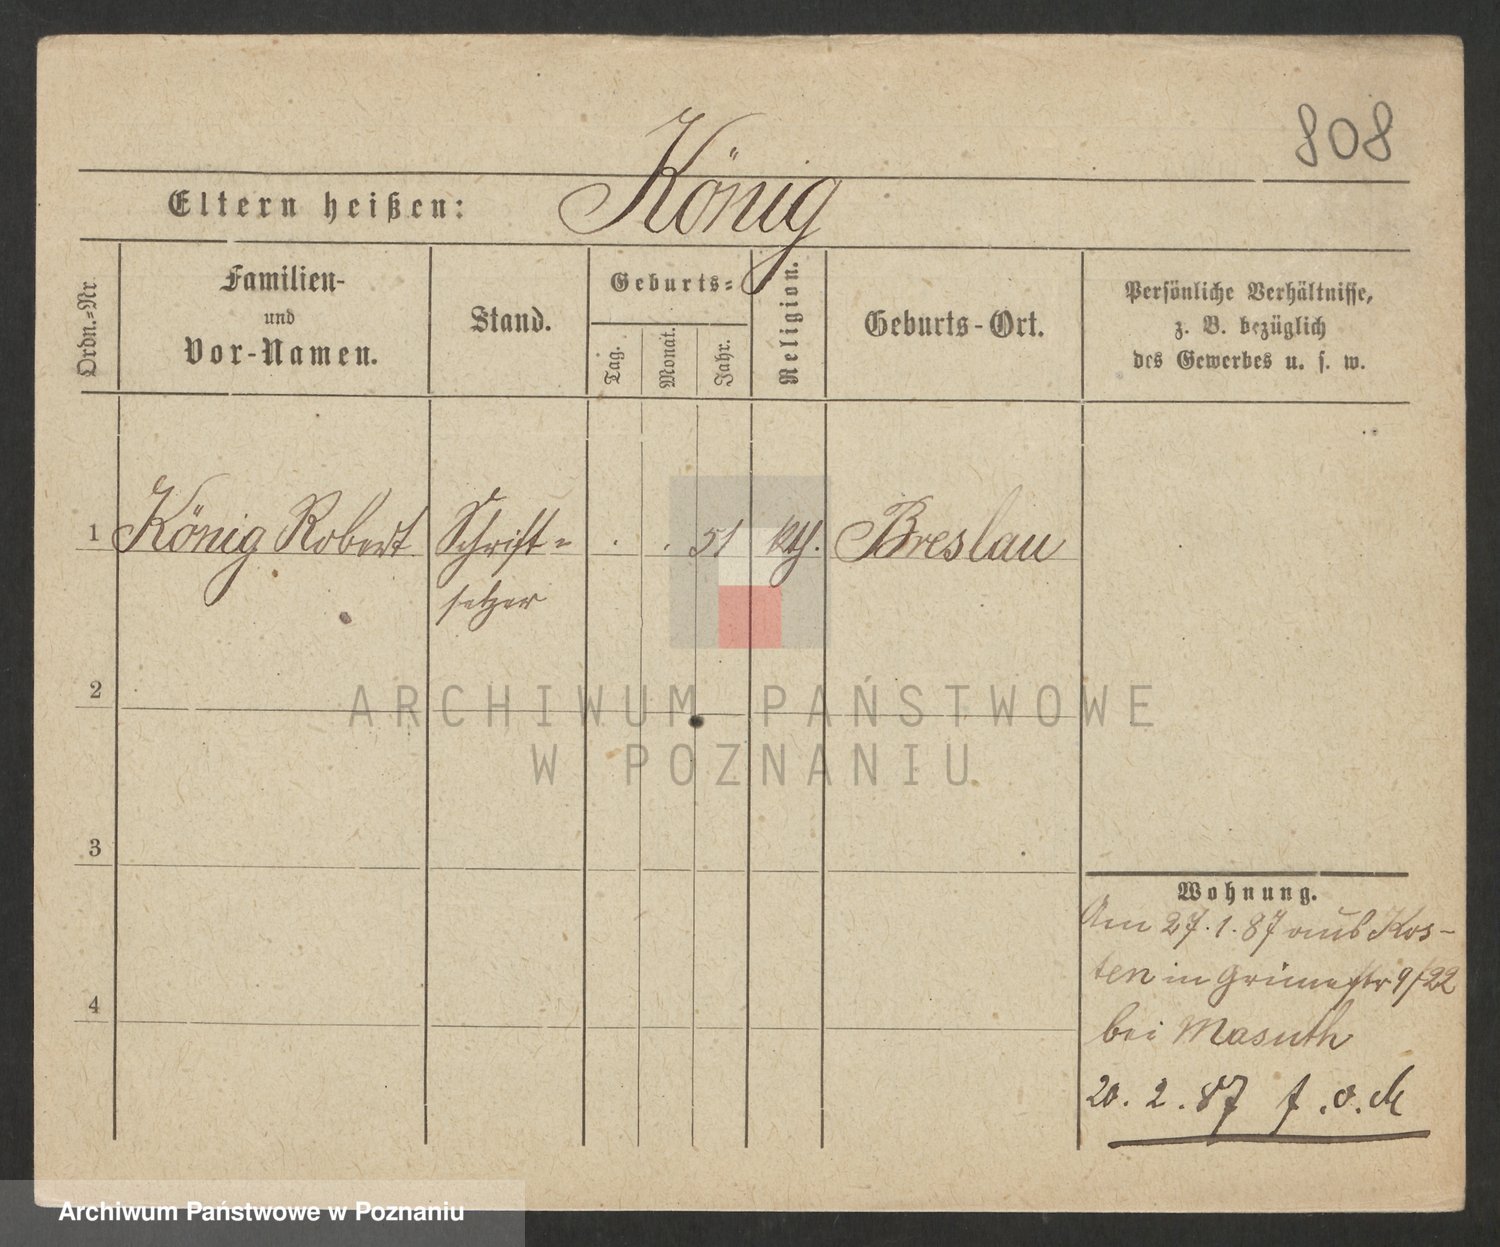 808
König
Eltern heißen:
Ordn.=Nr.
Familien-
und
Vor-Namen.
Stand.
Geburts=
Tag.
Monat.
Jahr.
Religion.
Geburts-Ort.
Persönliche Verhältnisse,
z. B. bezüglich
des Gewerbes u. s. w.
1 König Robert Schrift= . . 51 kth. Breslau
setzer
2
ARCHIWUM PAŃSTWOWE
W POZNANIU
3
Wohnung.
Am 27.1.87 aus Kos-
ten in Grünestr 9/22
bei Masuth
4
20.2.87 f.o.M
Archiwum Państwowe w Poznaniu